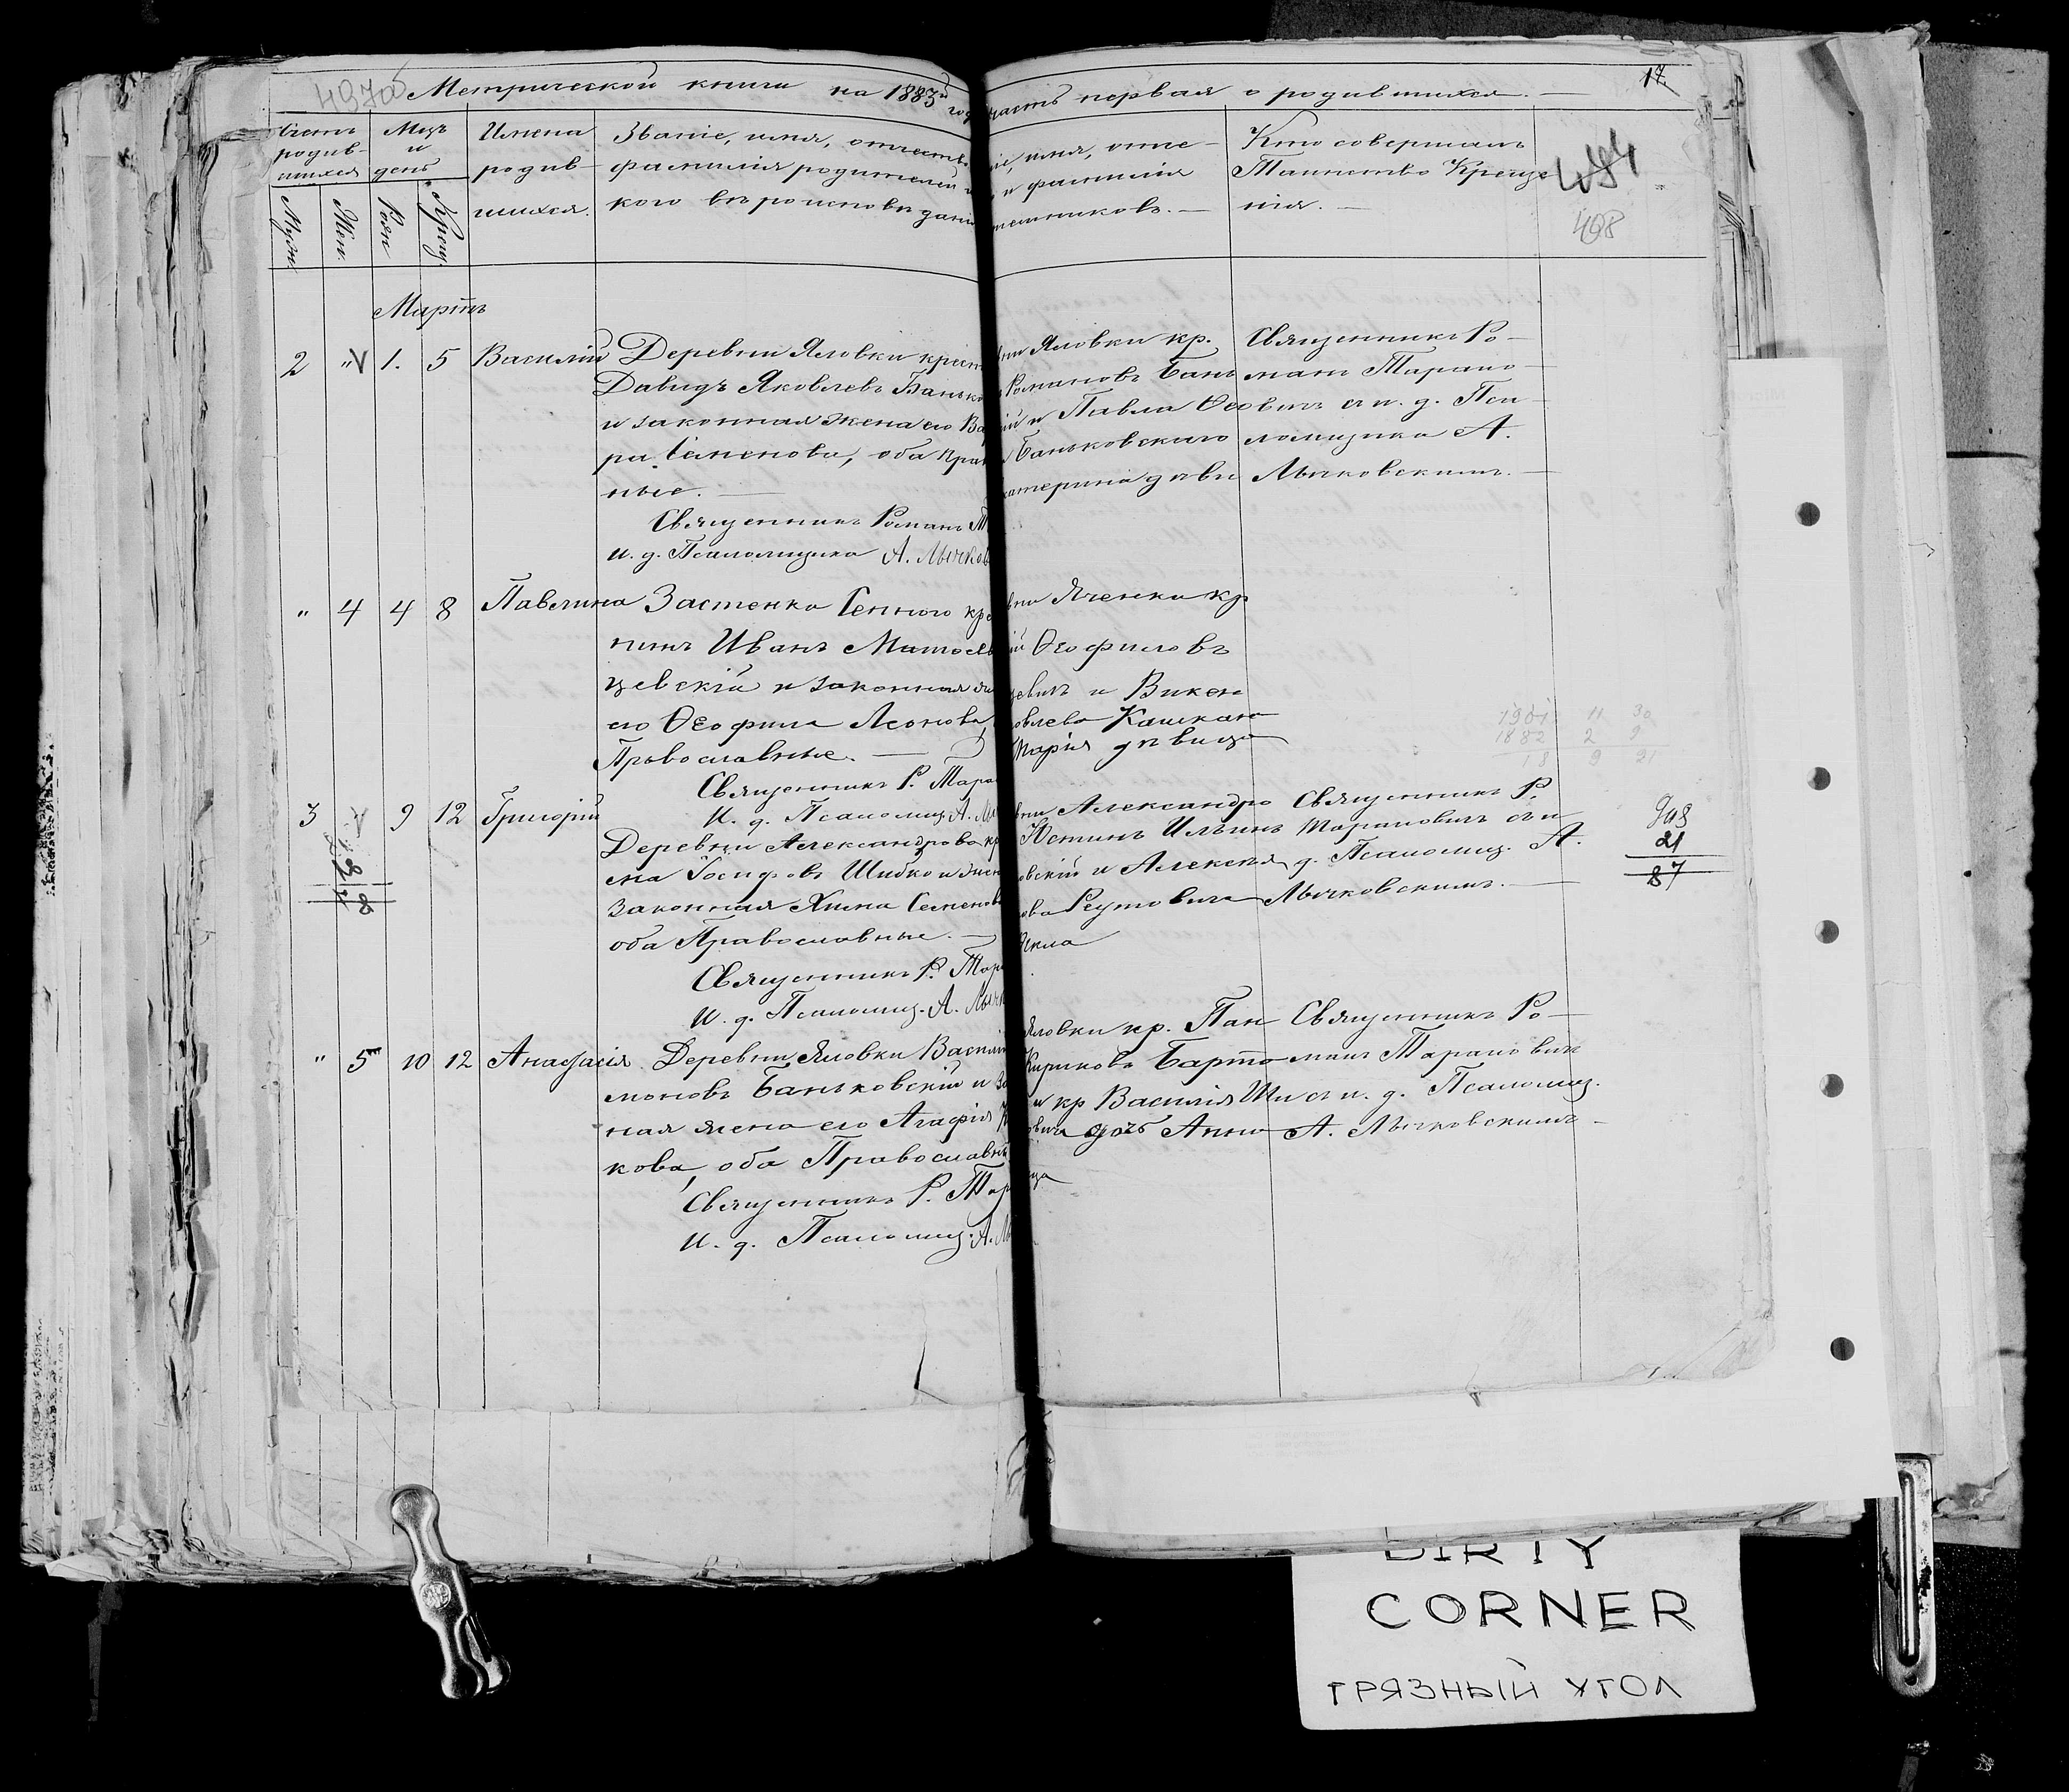 497об
Метрической книги на 1883й год часть первая о родившихся.
17
484
498
Счетъ родив-шихся
Муж.
Жен.
Мцъ и день
Рож
Крещ.
Имена родив-шихся.
Званіе, имя, отчество
фамилія родителей и
кого вѣроисповѣданія
іе, имя, отче-
и фамилія
телниковъ.
Кто совершалъ
Таинство Креще
нія.
Мартъ
2 " V 1. 5 Василій
Деревни Яловки крест
Давидъ Яковлевъ Банько
и законная жена его Ва
ра Семенова, оба прав
ные.
Священникъ Романъ Т
И. д. Псаломщика А. Лычков
ни Яловки кр.
Романовъ Бань
ій и Павла Ѳео
Баньковскаго
катерина дѣви
Священникъ Ро-
манъ Тарано-
вичъ съ и. д. Пса-
ломщика А.
Лычковскимъ.
" 4 4 8 Павлина
Застенка Сенного кре
нинъ Иванъ Матѳев
цевскій и законная же
его Ѳеофила Леонова,
Православные.
Священникъ Р. Тара
И. д. Псаломщ. А. Лы
вни Яченки кр
ій Ѳеофиловъ
цевичъ и Викен
овлева Кашкан
Марія дѣвица
1901 11 30
1882 2 9
18 9 21
3 9 12 Григорій
Деревни Александрова кр
ска Іосифовъ Шибко и жен
законная Химка Семенов
оба Православные.
Священникъ Р. Тар
И. д. Псаломщ. А. Лычк
вни Александро
Юстинъ Ильинъ
овскій и Алексѣя
ова Реутовича
Ѳекла
Священникъ Р.
Тарановичъ съ и
д. Псаломщ. А.
Лычковскимъ.
21
87
" 5 10 12 Анастасія
Деревни Яловки Василій
моновъ Баньковскій и за
ная жена его Агафія К
кова, оба Православн
Священникъ Р. Тар
И. д. Псаломщ. А. Л
Яловки кр. Пан
Кириковъ Барто
и кр Василія Ши
овича дочь Анна
ца
Священникъ Ро-
манъ Тарановичъ
съ и. д. Псаломщ.
А. Лычковскимъ
DIRTY
CORNER
ГРЯЗНЫЙ УГОЛ